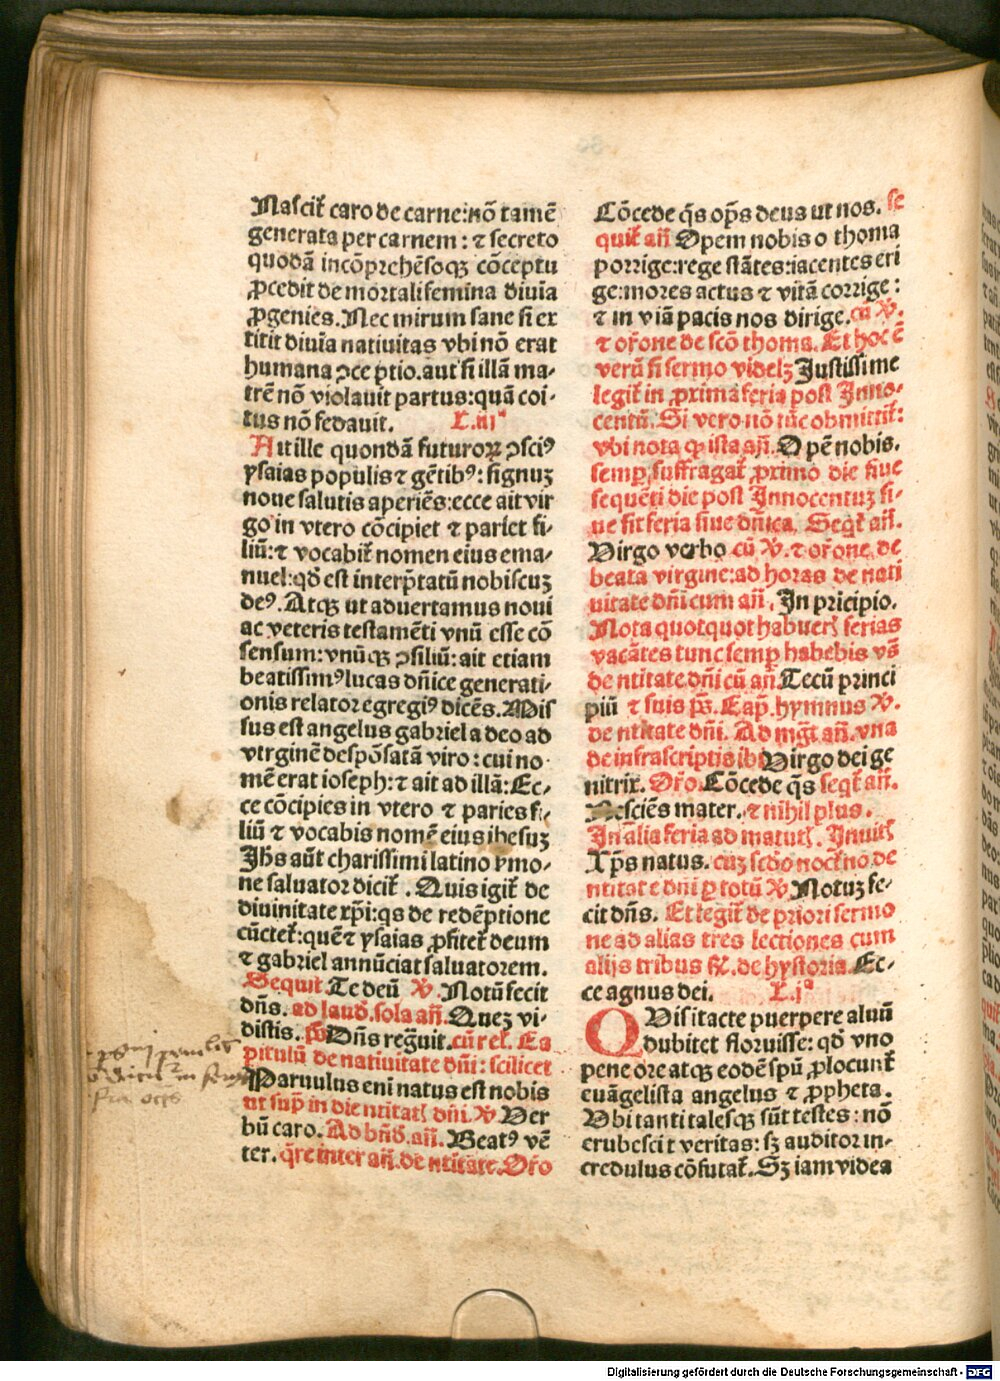 Nascit᷑ caro de carne: nõ tamẽ
generata per carnem: ⁊ secreto
quodã incõprehẽsoqꝫ cõceptu
ꝓcedit de mortali femina diuia
ꝓgenies. Nec mirum sane si ex
titit diuia natiuitas vbi nõ erat
humana ꝯceptio. aut si illã ma-
trẽ nõ violauit partus: quã coi-
tus nõ fedauit. L. iijᵃ
At ille quondã futuroꝝ ꝯsciꝰ
ysaias populis ⁊ gẽtibꝰ: signuꝫ
noue salutis aperiẽs: ecce ait vir
go in vtero cõcipiet ⁊ pariet fi-
liũ: ⁊ vocabit᷑ nomen eius ema-
nuel: qđ est interp̃tatũ nobiscuꝫ
deꝰ. Atqꝫ ut aduertamus noui
ac veteris testamẽti vnũ esse cõ
sensum: vnũqꝫ ꝯsiliũ: ait etiam
beatissimꝰ lucas dñice generati-
onis relator egregiꝰ dicẽs. Mis
sus est angelus gabriel a deo ad
virginẽ despõsatã viro: cui no-
mẽ erat ioseph: ⁊ ait ad illã: Ec-
ce cõcipies in vtero ⁊ paries fi-
liũ ⁊ vocabis nomẽ eius ihesuꝫ
Jhs aũt charissimi latino ymo-
ne saluator dicit᷑. Quis igit᷑ de
diuinitate xp̃i: qs de redẽptione
cũctet᷑: quẽ ⁊ ysaias ꝓfitet᷑ deum
⁊ gabriel annũciat saluatorem.
Sequit᷑ Te deũ ℣. Notũ fecit
dñs. ad laud. sola añ. Queꝫ vi-
distis. ps̃ Dñs reg̃uit. cũ rel. Ca
pitulũ de natiuitate dñi: scilicet
Paruulus eni natus est nobis
ut sup̃ in die ntitatꝭ dñi. ℣ Ver
bũ caro. Ad bñd. añ. Beatꝰ vẽ
ter. q̃re inter añ. de ntitate. Or̃o
Cõcede q̃s op̃s deus ut nos. se
quit᷑ añ Opem nobis o thoma
porrige: rege stãtes: iacentes eri
ge: mores actus ⁊ vitã corrige:
⁊ in viã pacis nos dirige. cũ ℣.
⁊ or̃one de scõ thoma. Et hoc ẽ
verũ si sermo videlꝫ Justissime
legit᷑ in ꝓxima feria post Inno-
centũ. Si vero nõ tũc obmittit᷑:
vbi nota ꝙ ista añ. Opẽ nobis.
semꝑ suffragat᷑ ꝓximo die siue
sequẽti die post Innocentuꝫ si-
ue sit feria siue dñica. Seqt᷑ añ.
Virgo verbo cũ ℣. ⁊ or̃one de
beata virgine: ad horas de nati
uitate dñi cum añ. In pricipio.
Nota quotquot habuerꝭ ferias
vacãtes tunc semꝑ habebis vs̃
de ntitate dñi cũ añ Tecũ princi
piũ ⁊ suis ps̃. Cap. hymnus ℣.
de ntitate dñi. Ad mgt᷑ añ. vna
de infrascriptis ibi Virgo dei ge
nitrix. Or̃o. Cõcede q̃s seqt᷑ añ.
Nesciẽs mater. ⁊ nihil plus.
In alia feria ad matutꝭ. Inuitꝭ
Xp̃s natus. cuꝫ scdo noct᷑no de
ntitate dñi ꝑ totũ ℣ Notuꝫ fe-
cit dñs. Et legit᷑ de priori sermo
ne ad alias tres lectiones cum
alijs tribus ℟. de hystoria. Ec-
ce agnus dei. L. jᵃ
QVis itacte puerpere aluũ
dubitet floruisse: qđ vno
pene ore atqꝫ eodẽ spũ ꝓlocunt᷑
euãgelista angelus ⁊ ꝓpheta.
Vbi tanti talesqꝫ sũt testes: nõ
erubescit veritas: sꝫ auditor in-
credulus cõfutat᷑. Sꝫ iam videa
Digitalisierung gefördert durch die Deutsche Forschungsgemeinschaft - DFG